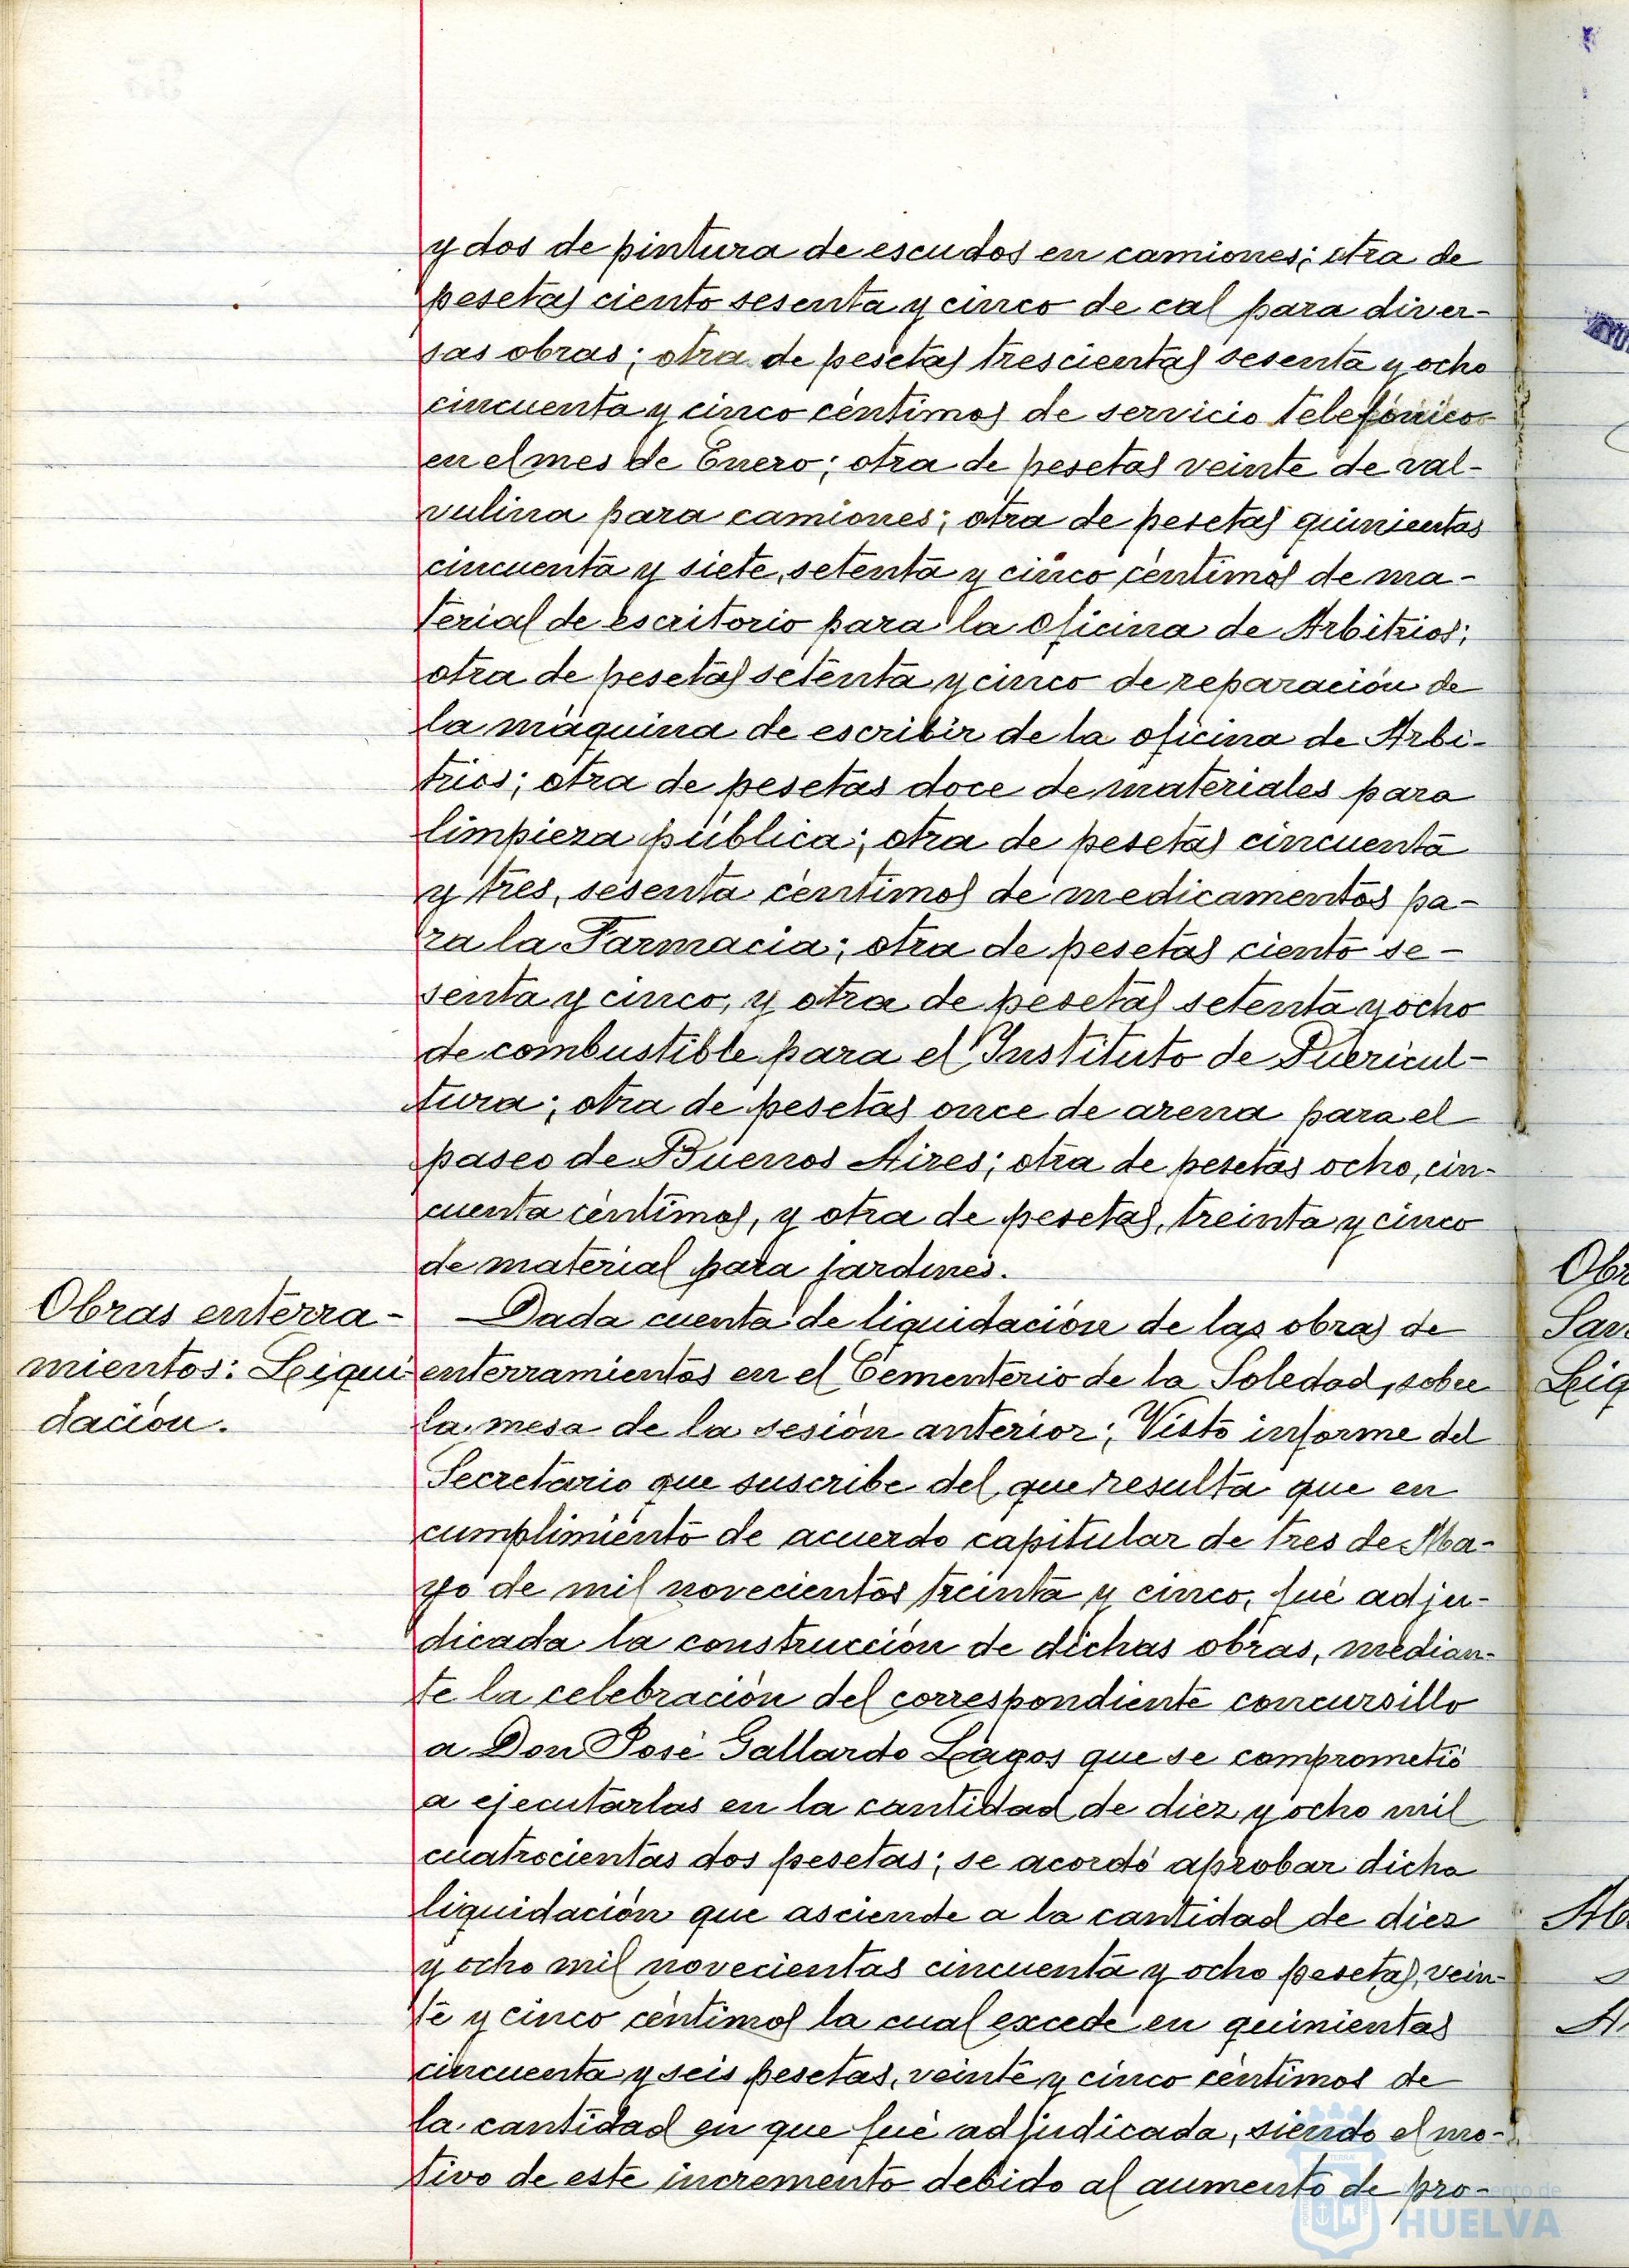 y dos de pintura de escudos en camiones; otra de
pesetas ciento sesenta y cinco de cal para diver-
sas obras; otra de pesetas trescientas sesenta y ocho
cincuenta y cinco céntimos de servicio telefónico
en el mes de Enero; otra de pesetas veinte de val-
vulina para camiones; otra de pesetas quinientas
cincuenta y siete, setenta y cinco céntimos de ma-
terial de escritorio para la oficina de Arbitrios;
otra de pesetas setenta y cinco de reparación de
la máquina de escribir de la oficina de Arbi-
trios; otra de pesetas doce de materiales para
limpieza pública; otra de pesetas cincuenta
y tres, sesenta céntimos de medicamentos pa-
ra la Farmacia; otra de pesetas ciento se-
senta y cinco, y otra de pesetas setenta y ocho
de combustible para el Instituto de Puericul-
tura; otra de pesetas once de arena para el
paseo de Buenos Aires; otra de pesetas ocho, cin-
cuenta céntimos, y otra de pesetas, treinta y cinco
de material para jardines.
Obras enterra-
mientos: Liqui-
dación.
Dada cuenta de liquidación de las obras de
enterramientos en el Cementerio de la Soledad, sobre
la mesa de la sesión anterior; Visto informe del
Secretario que suscribe del que resulta que en
cumplimiento de acuerdo capitular de tres de Ma-
yo de mil novecientos treinta y cinco, fué adju-
dicada la construcción de dichas obras, median-
te la celebración del correspondiente concursillo
a Don José Gallardo Lagos que se comprometió
a ejecutarlas en la cantidad de diez y ocho mil
cuatrocientas dos pesetas; se acordó aprobar dicha
liquidación que asciende a la cantidad de diez
y ocho mil novecientas cincuenta y ocho pesetas, vein-
te y cinco céntimos la cual excede en quinientas
cincuenta y seis pesetas, veinte y cinco céntimos de
la cantidad en que fué adjudicada, siendo el mo-
tivo de este incremento debido al aumento de pro-
Obr
San
Liq
HUELVA